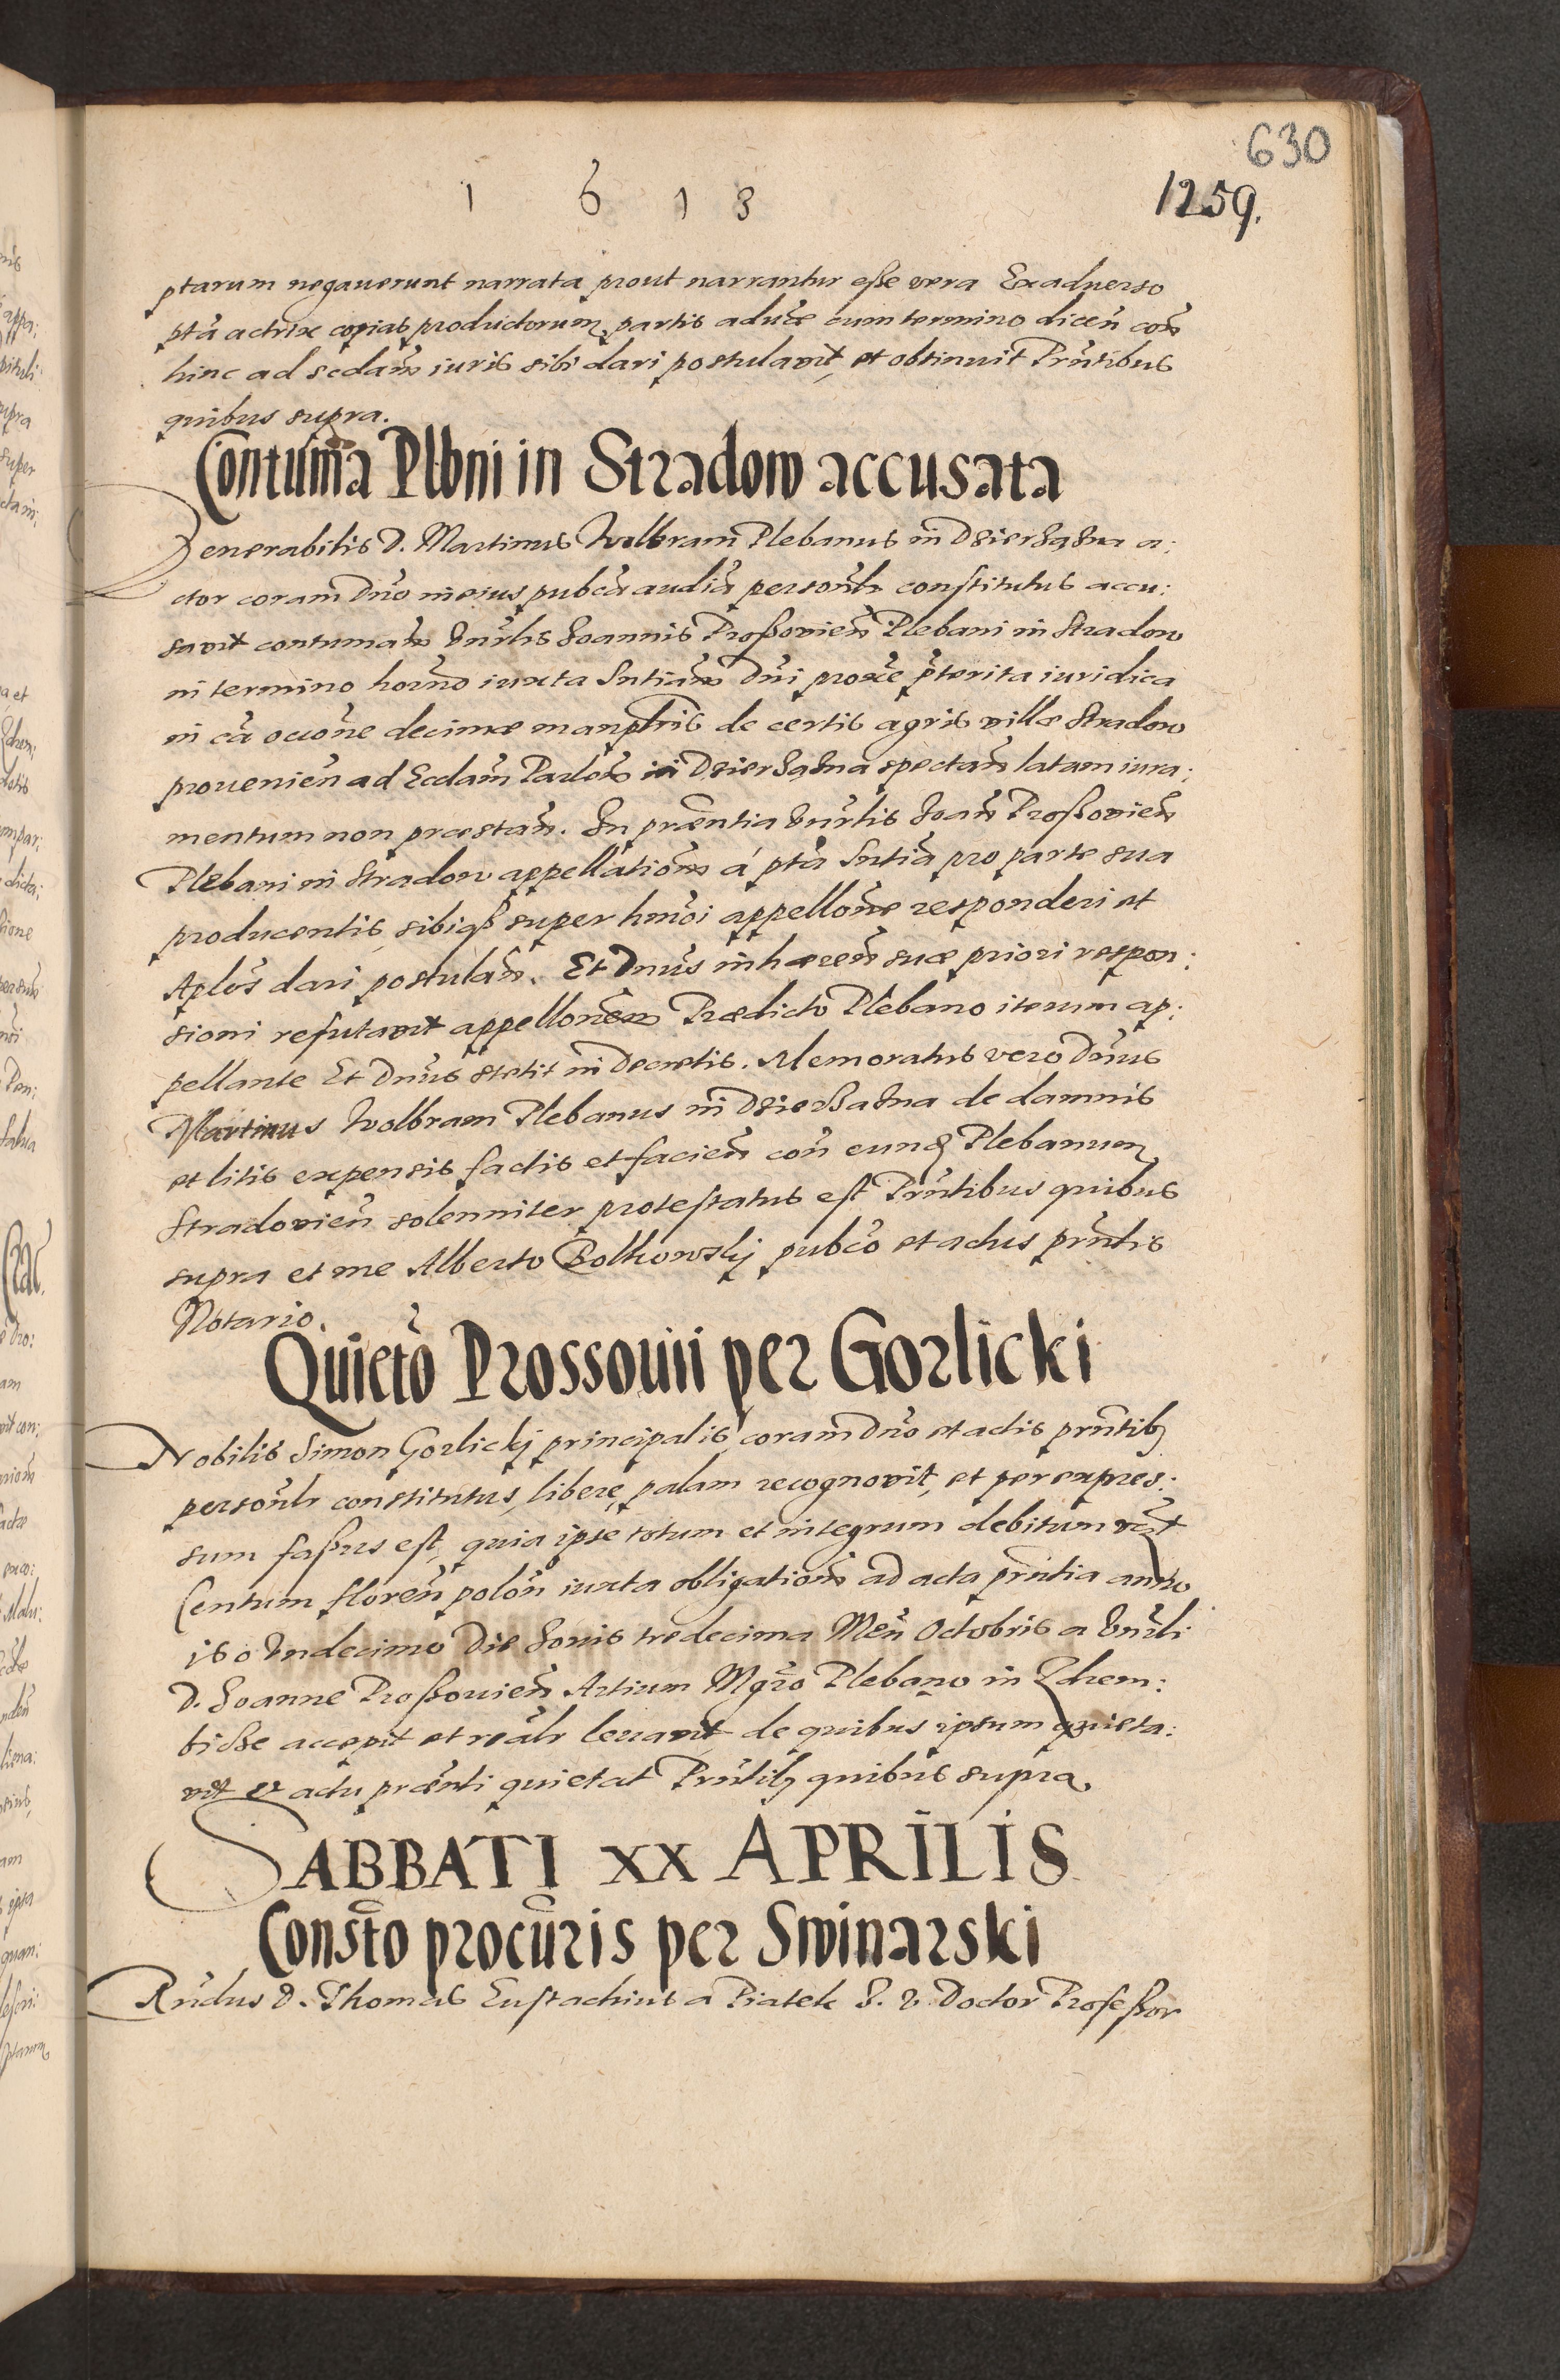 630
1 6 1 3
1259.
ptarum negauerunt narrata prout narrantur esse vera Exaduerso
pta actrix copias productorum partis aduse cum termino dicen con
hinc ad scdam iuris sibi dari postulavit, et obtinuit Prntibus
quibus supra.
Contuma Plbni in Stradow accusata
Venerabilis D. Martinus Wolbram Plebanus in Dzierzązna a:
ctor coram Dno in eius pubca audia personlr constitutus accu:
savit contumam Vnrlis Joannis Prossovien Plebani in Stradow
in termino horno iuxta Sntiam Dni proxe pterita iuridica
in ca occone decimæ manplris de certis agris villæ Stradow
prouenien ad Ecclam Parlem in Dzierzązna spectan latam iura:
mentum non præstan. In præntia Vnrlis Joan Prossovien
Plebani in Stradow appellationem á pta Sntia pro parte sua
producentis, sibiq super hmoi appellone responderi et
Aplos dari postulan. Et Dnus inhæren suæ priori respon:
sioni refutavit appellonem Prædicto Plebano iterum ap:
pellante Et Dnus stetit in Decretis. Memoratus vero Dnus
Martinus Wolbram Plebanus in Dzierzazna de damnis
et litis expensis factis et facien con eund Plebanum
Stradovien solenniter protestatus est Prntibus quibus
supra et me Alberto Bolkowskj pubco et actus prntis
Notario.
Quieto Prossouii per Gorlicki
Nobilis Simon Gorlickj principalis coram Dno et actis prntib
personlr constitutus, libere, palam recognovit, et per expres:
sum fassus est, quia ipse totum et integrum debitum
Centum floren polon iuxta obligationem ad acta prntia anno
160 Vndecimo Die Jovis tredecima Men Octobris a Vnrli
D. Joanne Prossouien Artium Mgro Plebano in Zhem:
bisse accepit et realr levavit de quibus ipsum quieta:
vit et actu prænti quietat Prntib quibus supra.
SABBATI XX APRILIS
Consto procuris per Swinarski
Rndus D. Thomas Eustachius a Piatek J. V. Doctor Professor